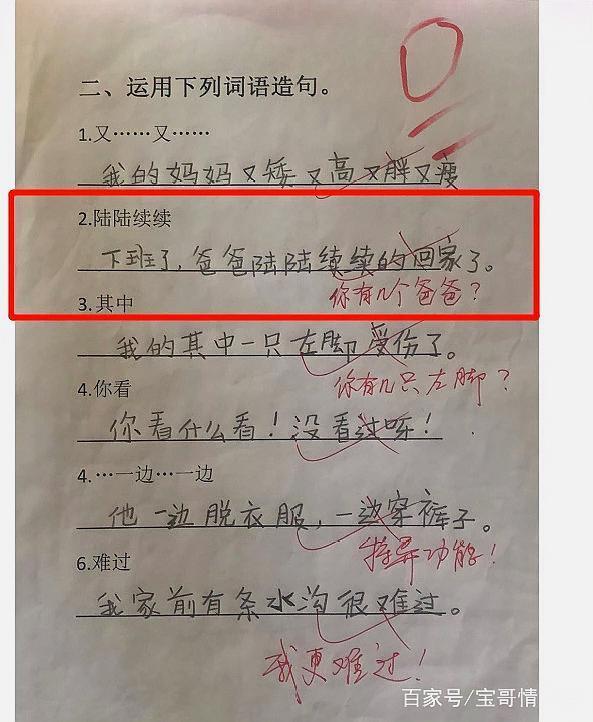 二、运用下列词语造句。
1.又……又……
我的妈妈又矮又高又胖又瘦
2.陆陆续续
下班了,爸爸陆陆续续的回家了。
你有几个爸爸?
3.其中
我的其中一只左脚受伤了。
你有几只左脚?
4.你看
你看什么看!没看过呀!
4.…一边…一边
他一边脱衣服,一边穿裤子。
特异功能!
6.难过
我家前有条水沟很难过。
我更难过!
百家号/宝哥情